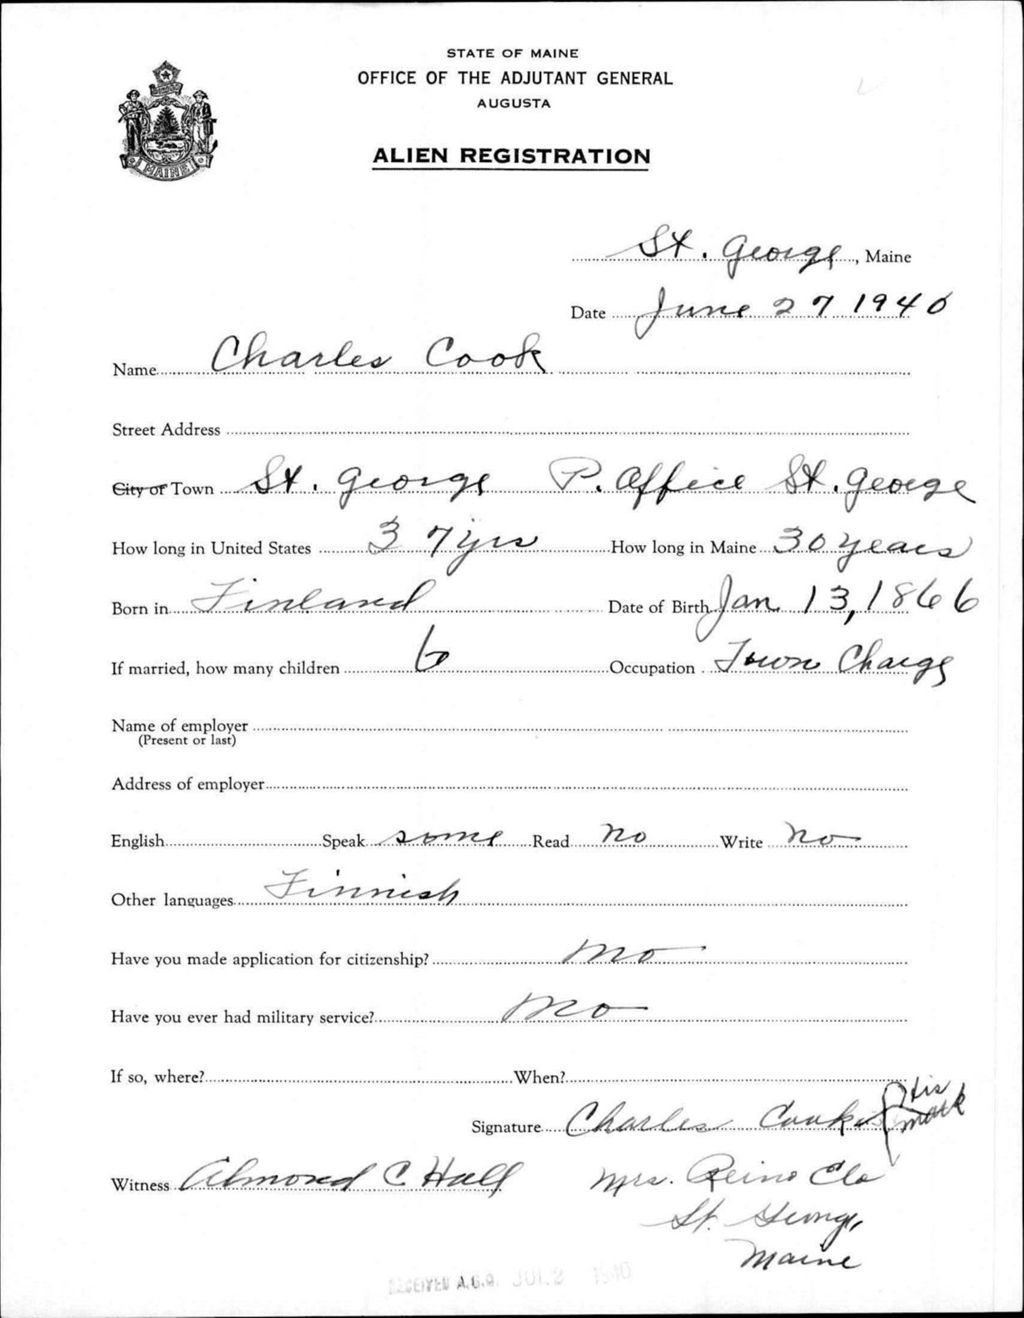 STATE OF MAINE
OFFICE OF THE ADJUTANT GENERAL
AUGUSTA
ALIEN REGISTRATION
MAINE
St. George, Maine
Date June 27 1940
Name Charles Cook
Street Address
City or Town St. George P. Office St. George
How long in United States 37 yrs How long in Maine 30 years
Born in Finland Date of Birth Jan 13, 1866
If married, how many children 6 Occupation Town Charge
Name of employer
(Present or last)
Address of employer
English Speak some Read no Write no
Other languages Finnish
Have you made application for citizenship? no
Have you ever had military service? no
If so, where? When?
Signature Charles Cook His mark
Witness Almond C. Hall Mrs. Reino Elo
St. George,
Maine
RECEIVED A.G.O. JUL 2 1940